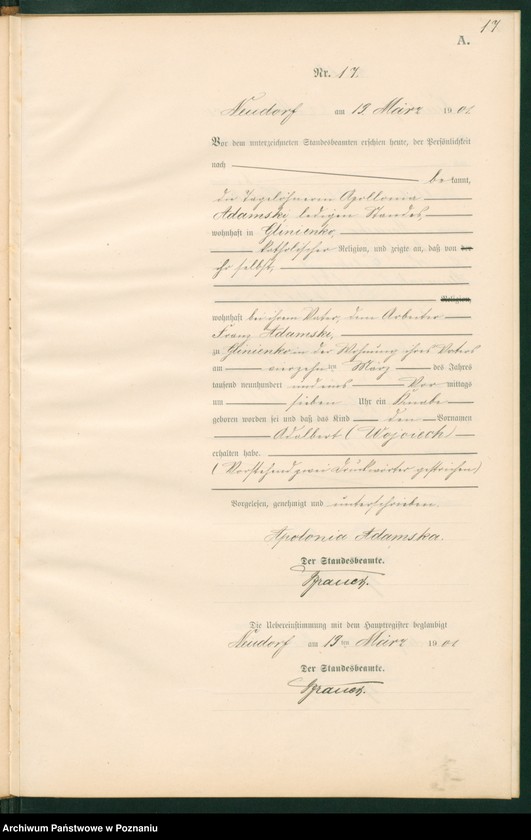 17
A.
Nr. 17.
Neudorf am 19. März 1901
Vor dem unterzeichneten Standesbeamten erschien heute, der Persönlichkeit
nach
be kannt,
die Tagelöhnerin Apollonia
Adamski, ledigen Standes,
wohnhaft in Glinienko,
katholischer Religion, und zeigte an, daß von der
ihr selbst,
Religion,
wohnhaft bei ihrem Vater, dem Arbeiter
Franz Adamski,
zu Glinienko in der Wohnung ihres Vaters
am vierzehnten März des Jahres
tausend neunhundert und eins Vor mittags
um sieben Uhr ein Knabe
geboren worden sei und daß das Kind den Vornamen
Adalbert (Wojciech)
erhalten habe.
(Vorstehend zwei Druckwörter gestrichen)
Vorgelesen, genehmigt und unterschrieben.
Apolonia Adamska.
Der Standesbeamte.
Die Uebereinstimmung mit dem Hauptregister beglaubigt
Neudorf am 19ten März 1901
Der Standesbeamte.
Archiwum Państwowe w Poznaniu